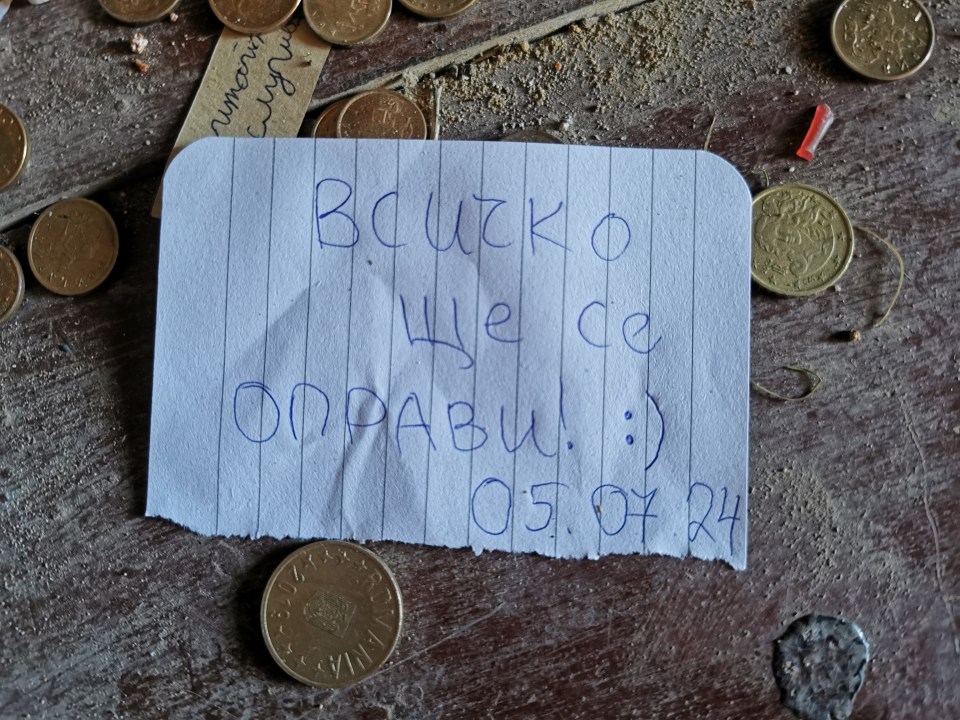 Всичко
ще се
ОПРАВИ! :)
05.07 24
ROMANIA